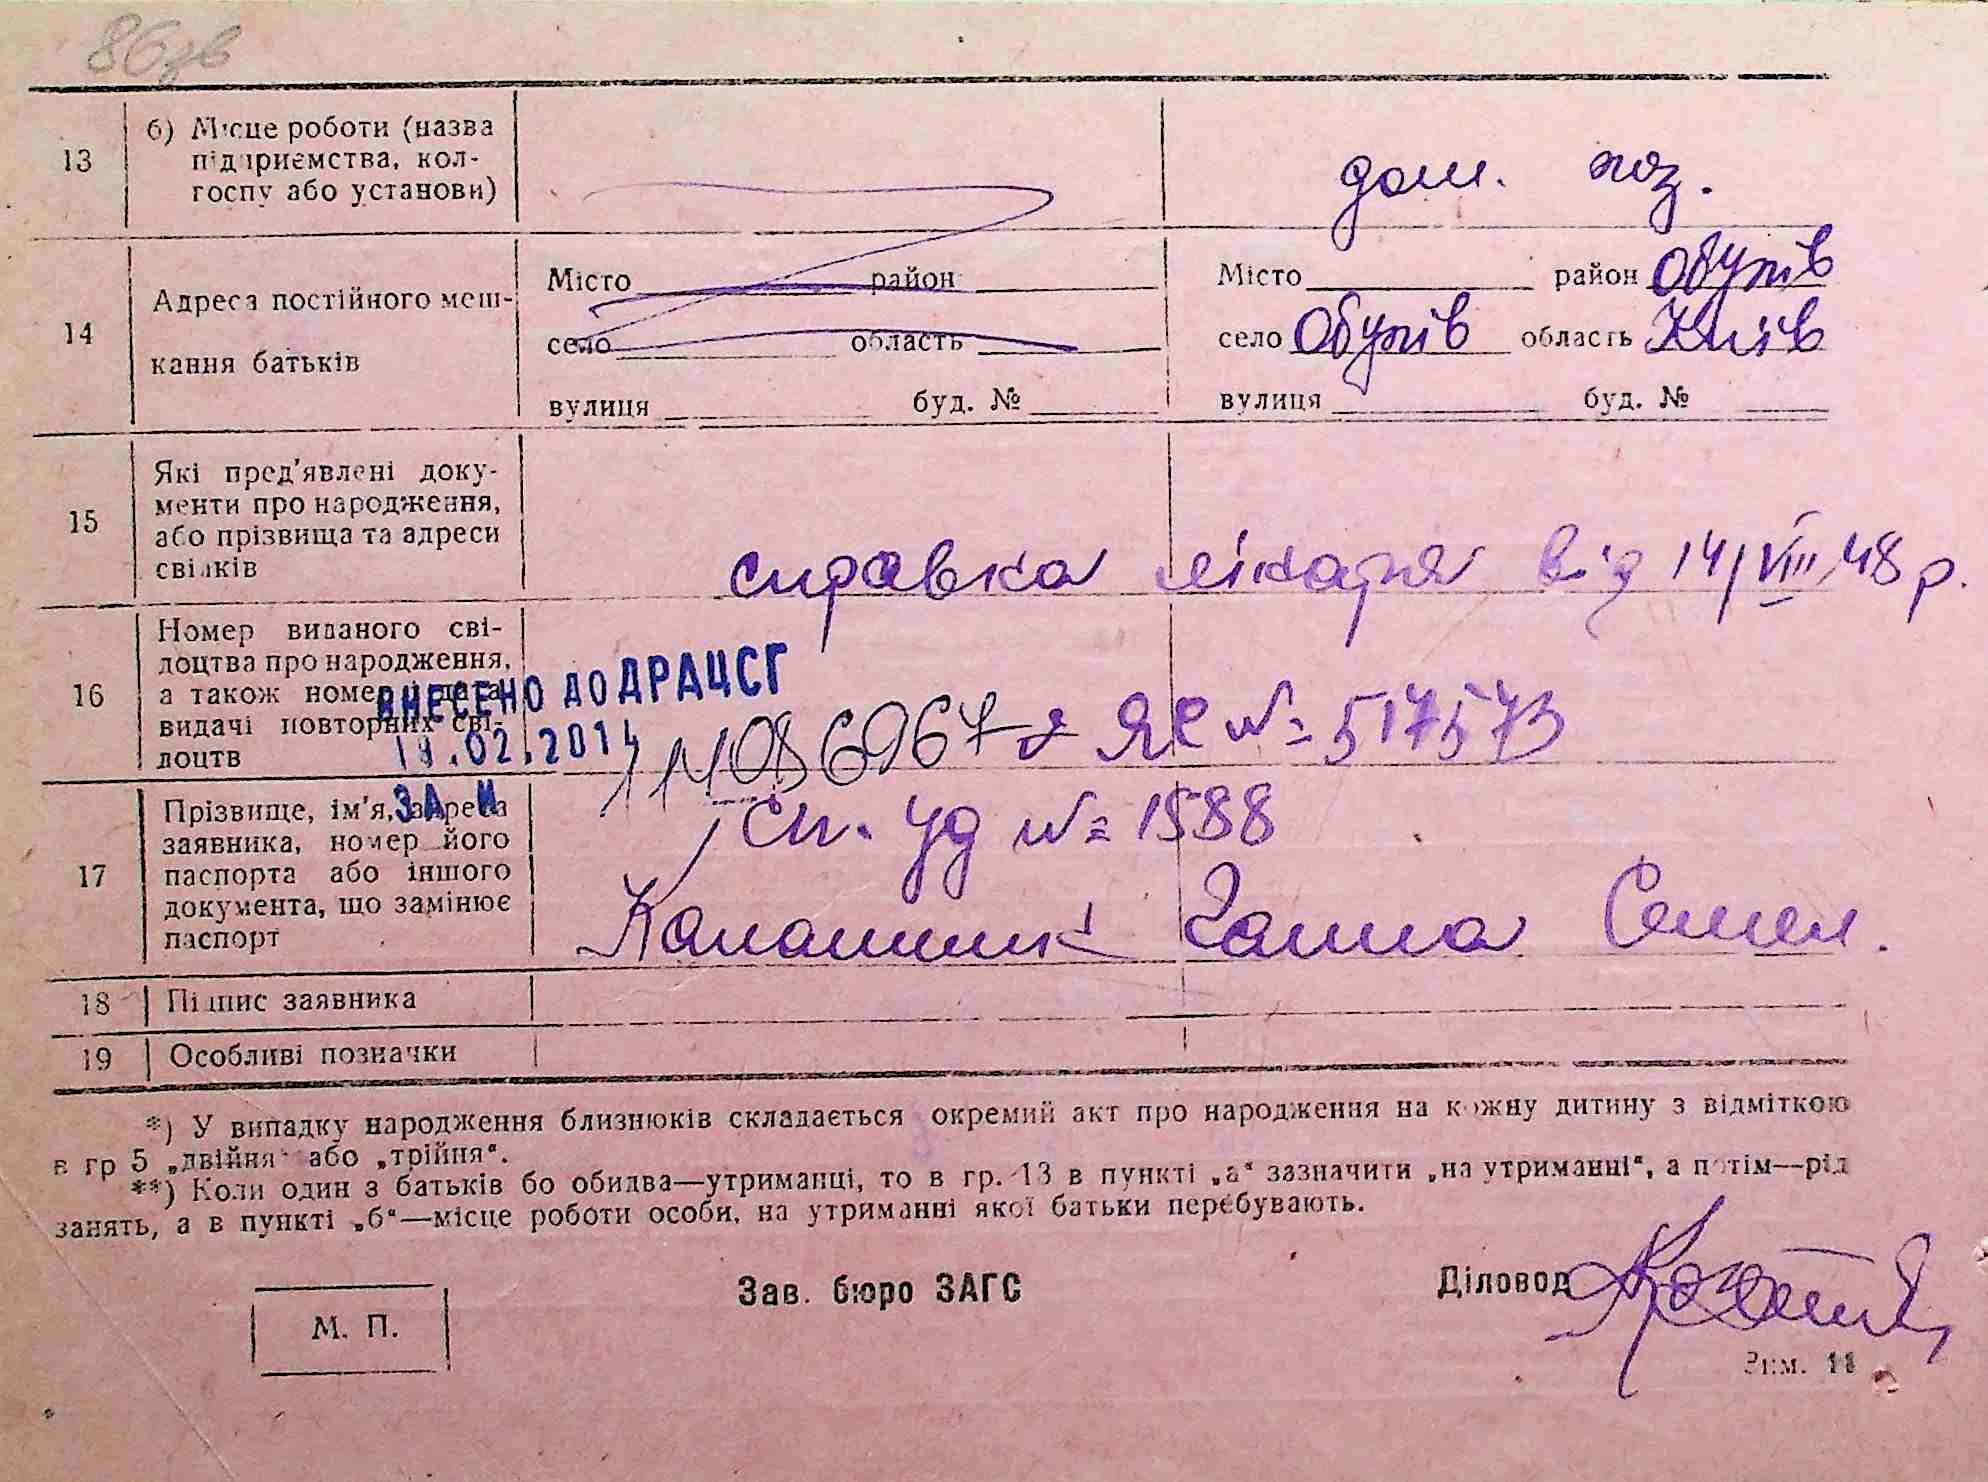 86зв
13
б) Місце роботи (назва
підприємства, кол-
госпу або установи)
дом. хоз.
14
Адреса постійного меш-
кання батьків
Місто район
село область
вулиця буд. №
Місто район Обухів
село Обухів область Київ
вулиця буд. №
15
Які пред'явлені доку-
менти про народження,
або прізвища та адреси
свідків
справка лікаря від 14/VIII 48 р.
16
Номер виданого сві-
доцтва про народження,
а також номер і дата
видачі повторних сві-
доцтв
ВНЕСЕНО ДО ДРАЦСГ
.02.2014
ЗА №
ЯЕ № 517573
17
Прізвище, ім'я, адреса
заявника, номер його
паспорта або іншого
документа, що замінює
паспорт
сп. уд № 1588
Ганна Семен.
18
Підпис заявника
19
Особливі позначки
*) У випадку народження близнюків складається окремий акт про народження на кожну дитину з відміткою
в гр 5 „двійня“ або „трійня“.
**) Коли один з батьків бо обидва—утриманці, то в гр. 13 в пункті „а“ зазначити „на утриманні“, а потім—рід
занять, а в пункті „б“—місце роботи особи, на утриманні якої батьки перебувають.
М. П.
Зав. бюро ЗАГС
Діловод
Зам. 11